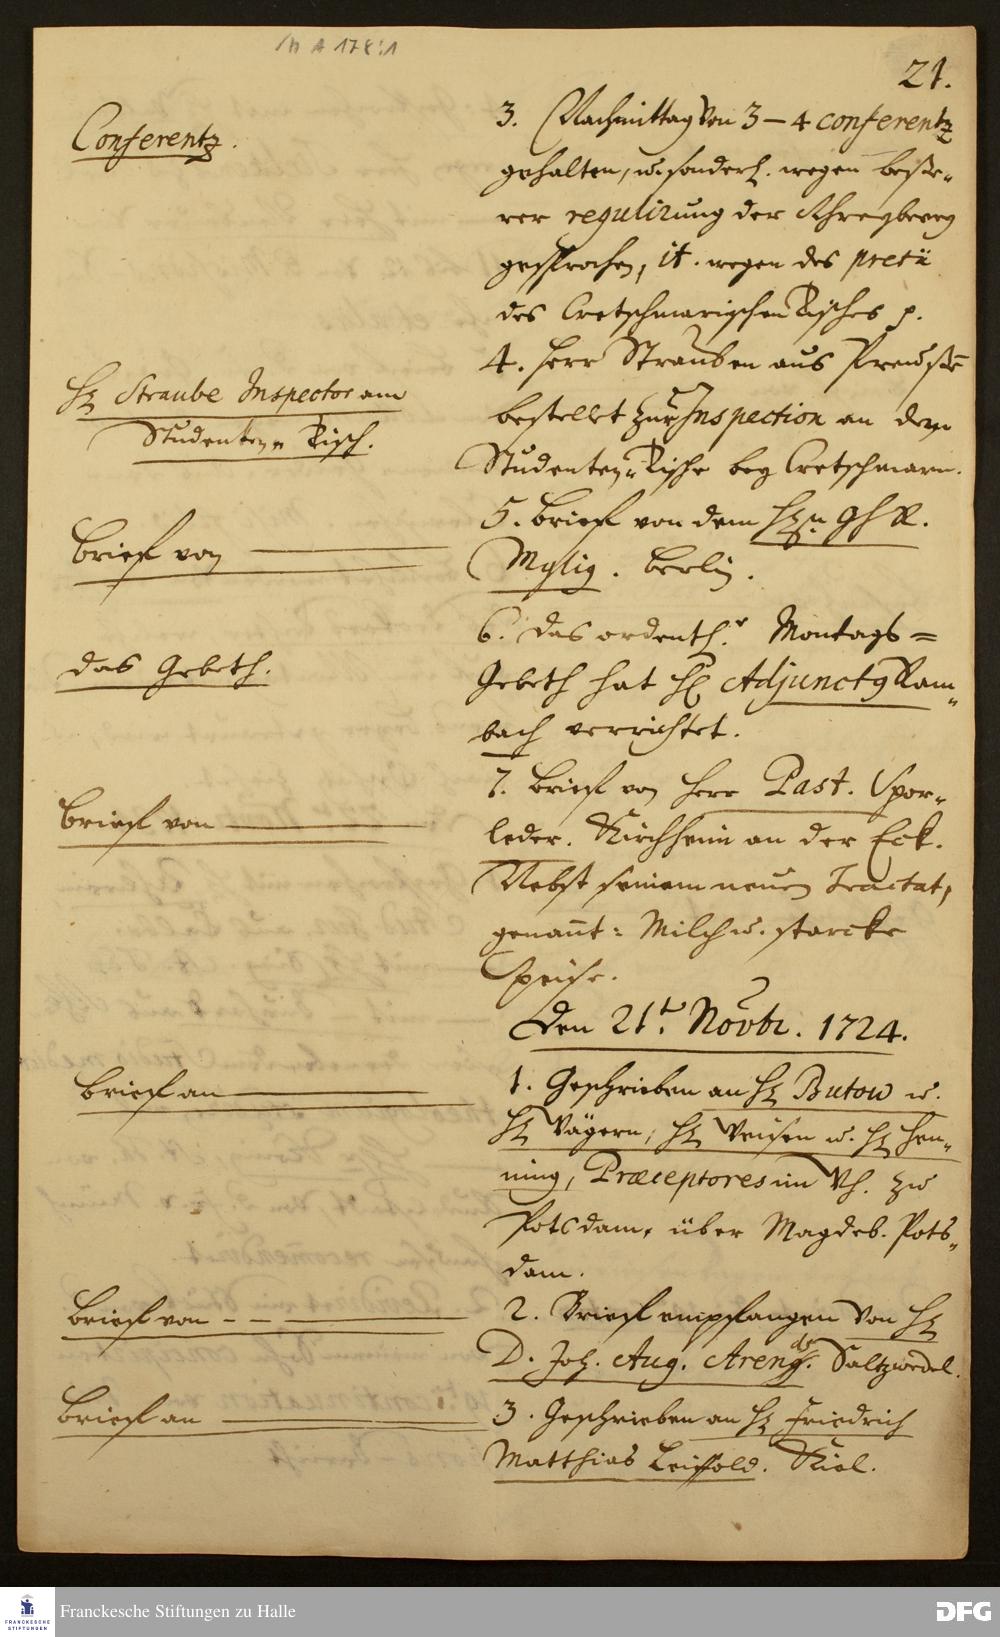 /h A 178:1
21.
Conferentz.
3. Nachmittag von 3–4 conferentz
gehalten, u. sonderl. wegen beße-
rer regulirung der
gesprochen, it. wegen des pretii
des Cretschmarischen Tisches p.
H. Straube Inspector am
Studenten-Tisch.
4. Herr Strauben aus Preußen
bestellet zur Inspection an dem
Studenten-Tische bey Cretschmarn.
Brief von
5. Brief von dem Hn GhR.
Mylig. Berlin.
das Gebeth.
6. Das ordentl. Montags=
Gebeth hat H. Adjunctg Ram-
bach verrichtet.
Brief von
7. Brief von Herr Past. Spor-
leder. Kirchheim an der Eck.
Nebst seinem neuen Tractat,
genannt: Milch u. starcke
Speise.
Den 21t. Novbr. 1724.
Brief an
1. Geschrieben an H. Butow u.
H. Vägern, H. u. H. Hen-
ning, Præceptores im Wh. zu
Potsdam, über Magdeb. Pots-
dam.
Brief von
2. Brief empfangen von H.
D. Joh. Aug. Arend. Saltzwedel.
Brief an
3. Geschrieben an H. Friedrich
Matthias Leippold. Kiel.
Franckesche Stiftungen zu Halle
FRANCKESCHE
STIFTUNGEN
DFG